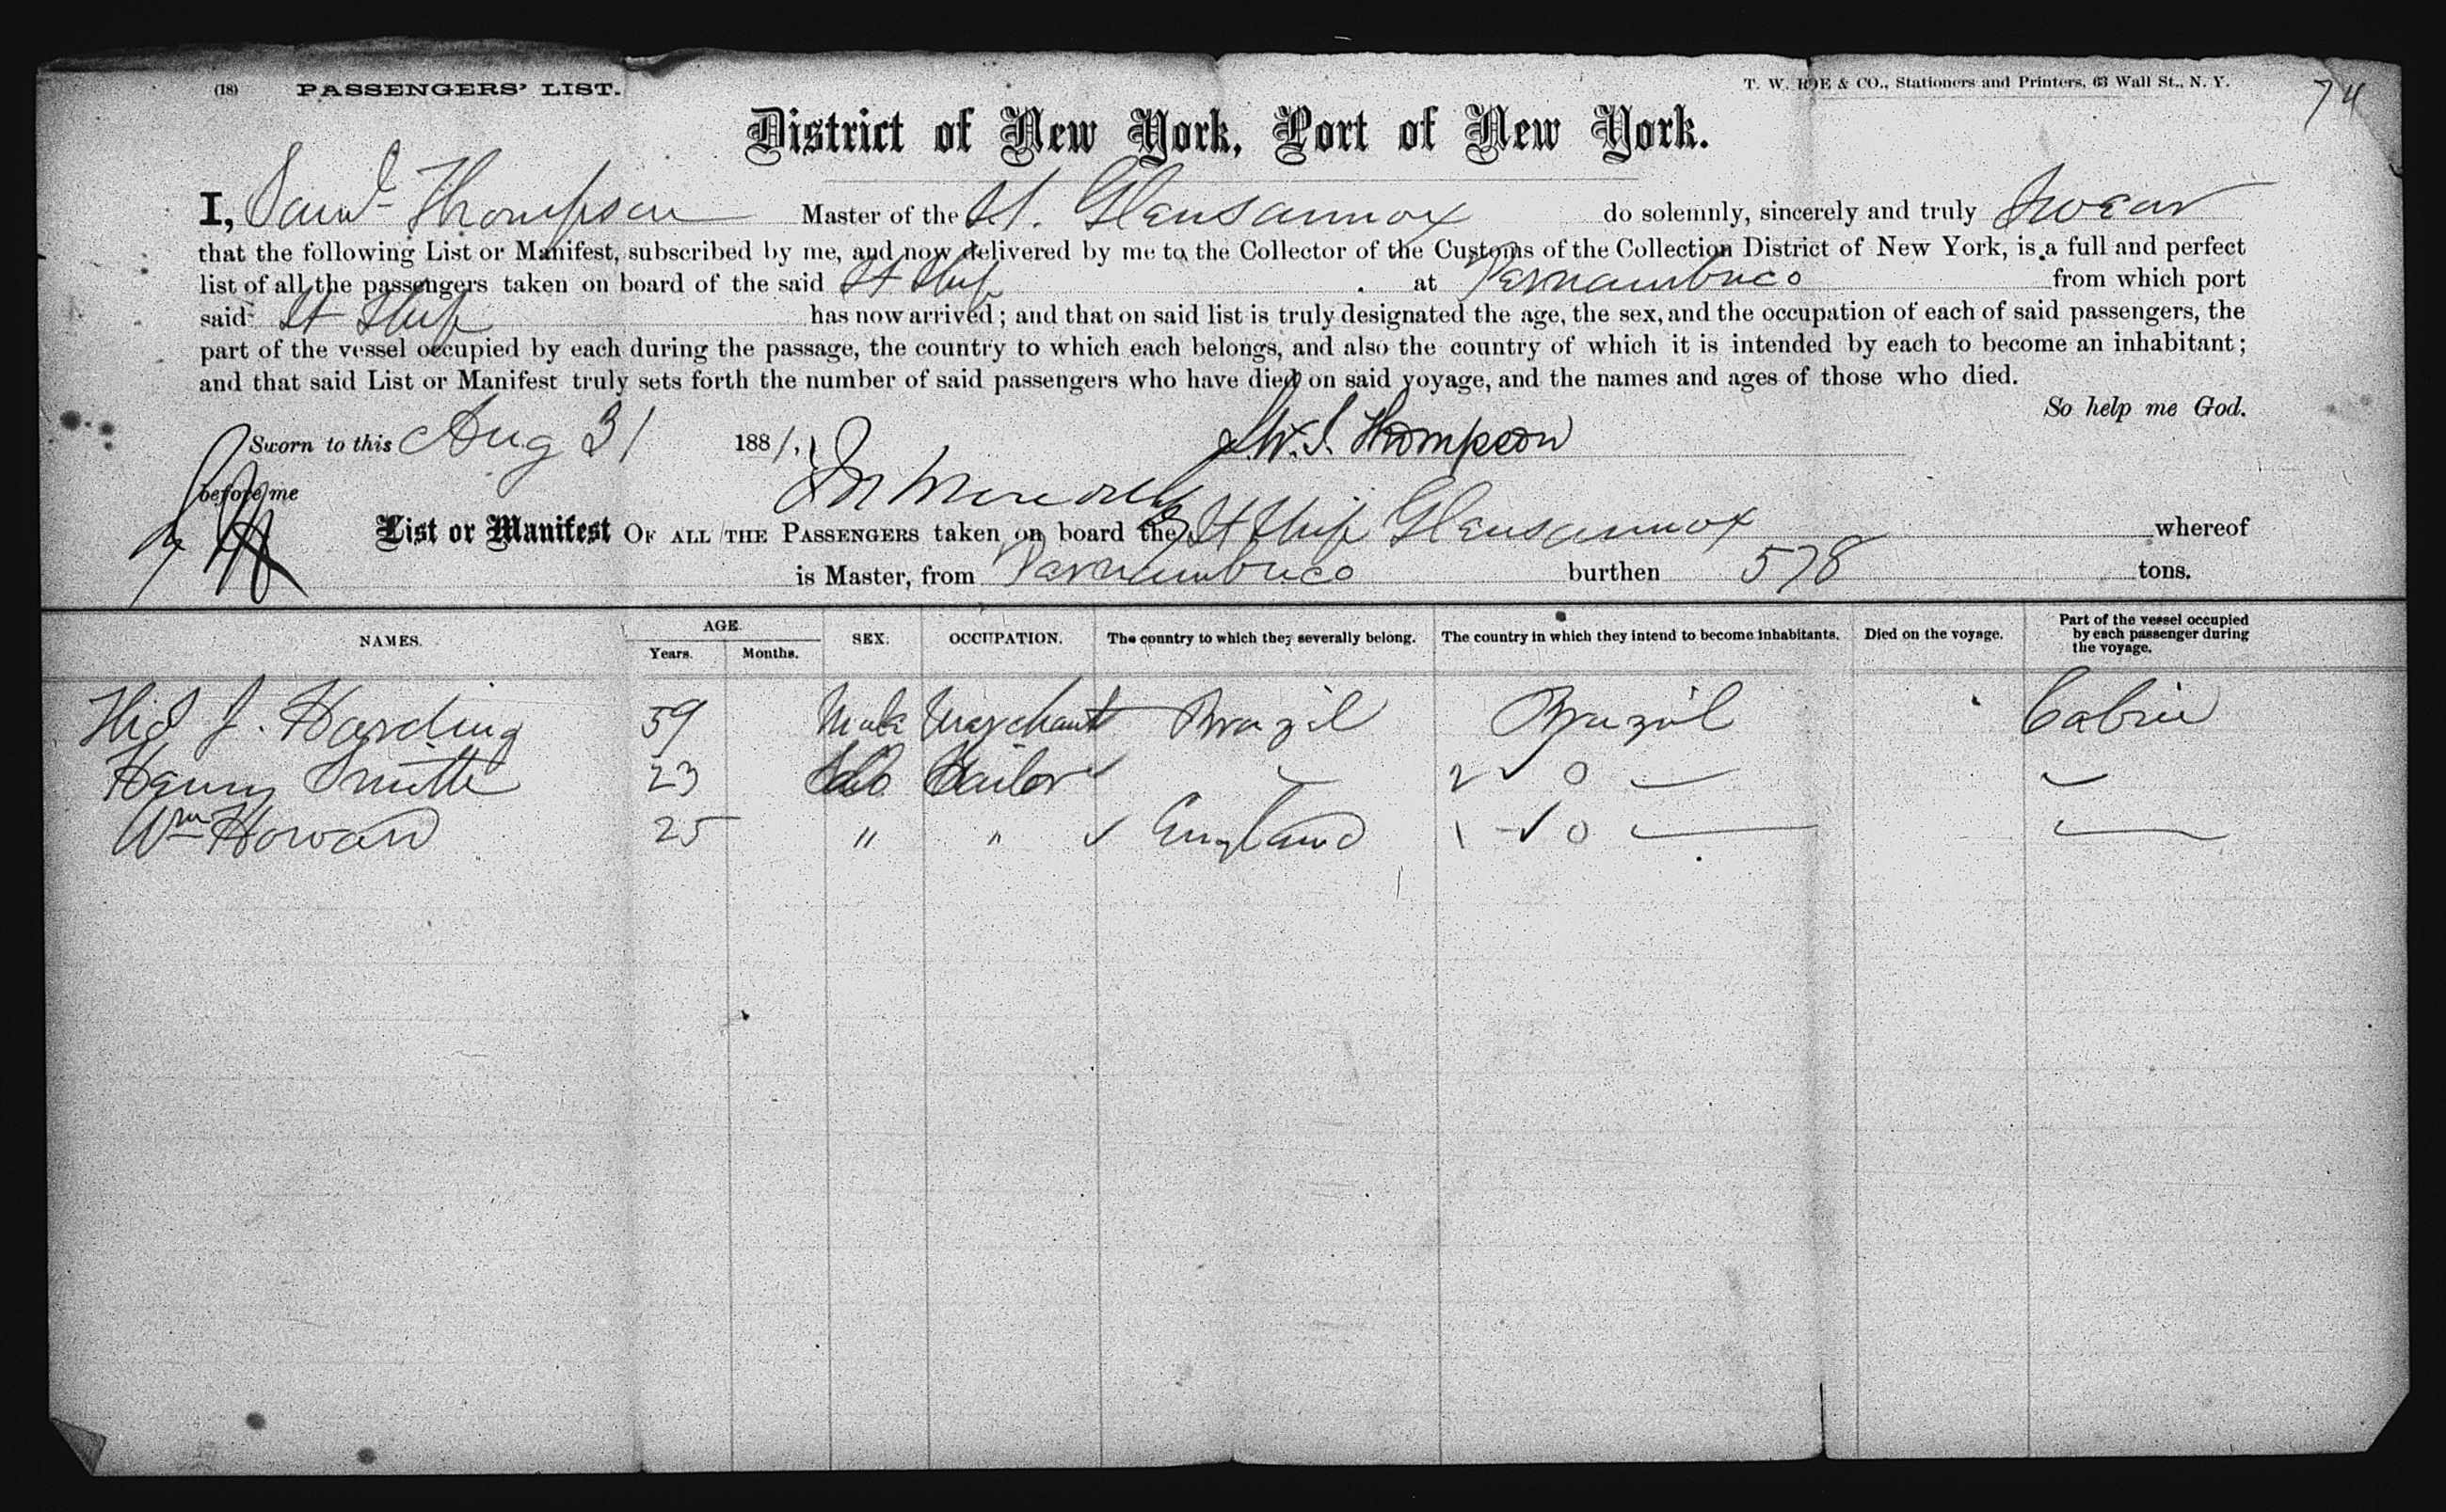 (18) PASSENGERS' LIST.
T. W. ROE & CO., Stationers and Printers, 63 Wall St., N. Y.
74
District of New York, Port of New York.
I, Saml Thompson Master of the St. Glensannox do solemnly, sincerely and truly Swear
that the following List or Manifest, subscribed by me, and now delivered by me to the Collector of the Customs of the Collection District of New York, is a full and perfect
list of all the passengers taken on board of the said St Ship at Pernambuco from which port
said St Ship has now arrived; and that on said list is truly designated the age, the sex, and the occupation of each of said passengers, the
part of the vessel occupied by each during the passage, the country to which each belongs, and also the country of which it is intended by each to become an inhabitant;
and that said List or Manifest truly sets forth the number of said passengers who have died on said voyage, and the names and ages of those who died.
So help me God.
Sworn to this Aug 31 1881. Thompson
before me
List or Manifest OF ALL THE PASSENGERS taken on board the St Ship Glensannox whereof
is Master, from Pernambuco burthen 578 tons.
NAMES. AGE. Years. Months. SEX. OCCUPATION. The country to which they severally belong. The country in which they intend to become inhabitants. Died on the voyage. Part of the vessel occupied by each passenger during the voyage.
J. Harding 59 Male Merchant Brazil Brazil Cabin
Henry Smith 23 Do Sailor ✓ 2 ✓ 0
Wm Howard 25 " " ✓ England 1 - ✓ 0